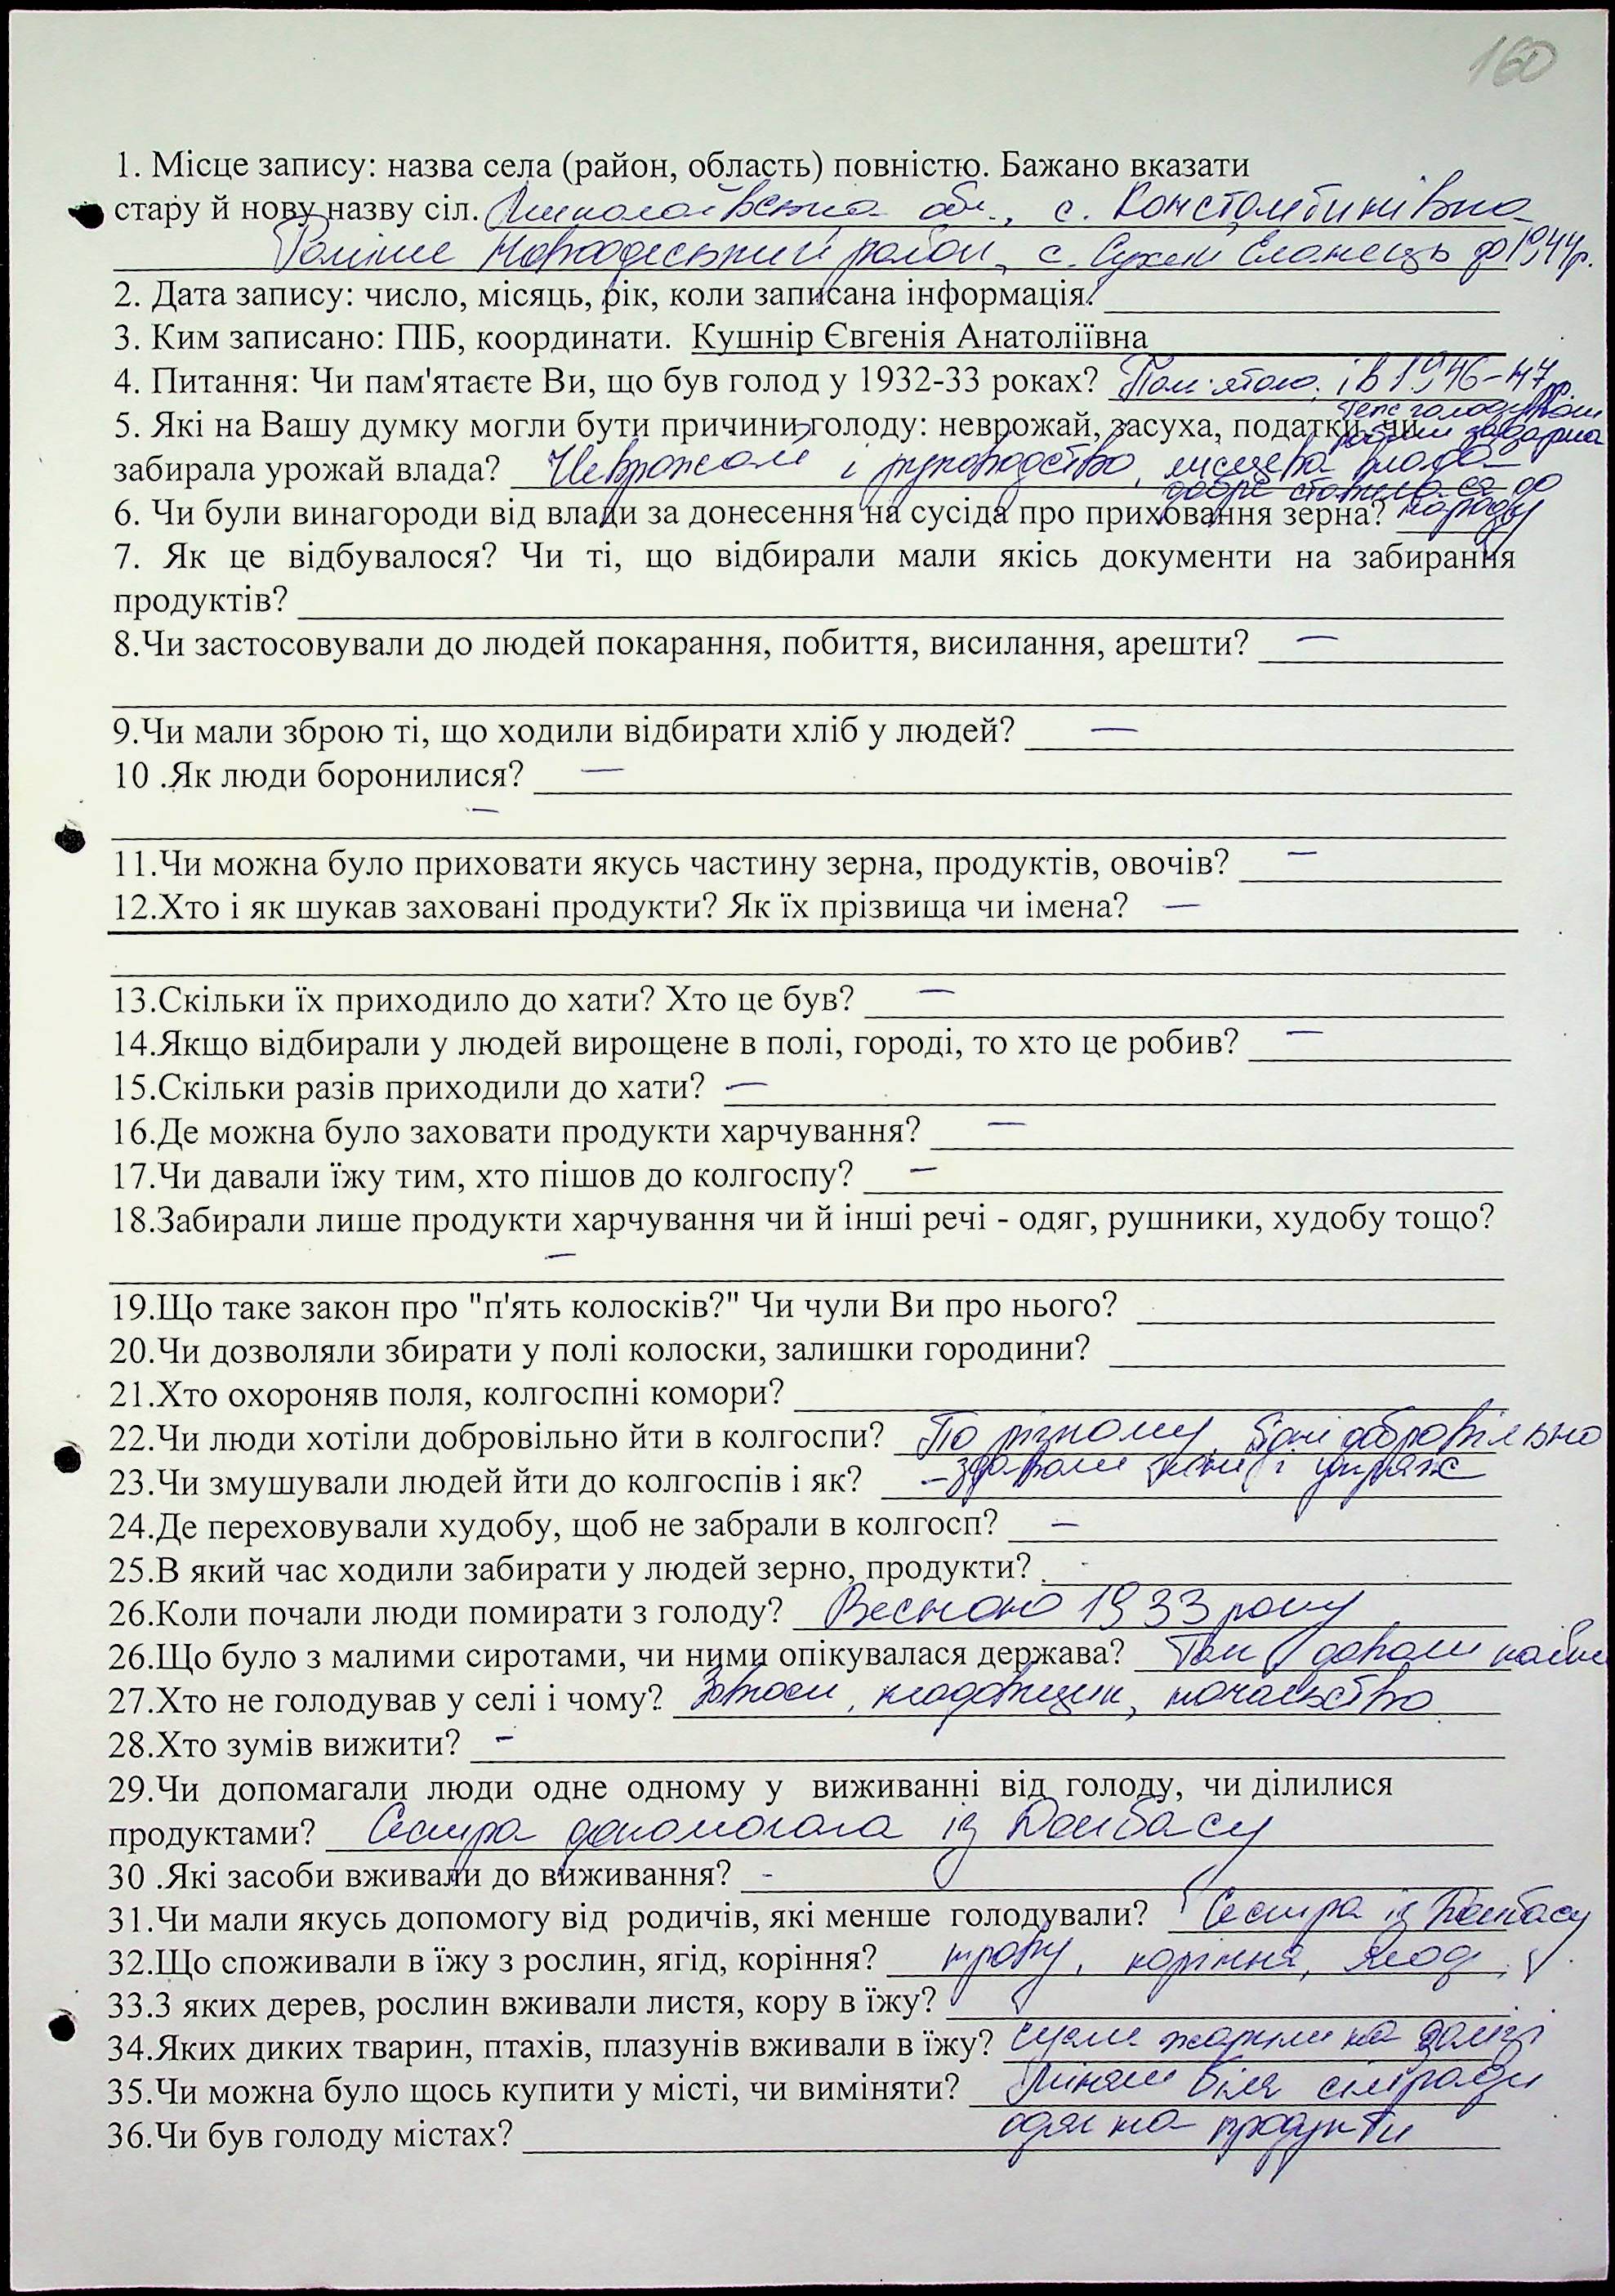 160
1. Місце запису: назва села (район, область) повністю. Бажано вказати
стару й нову назву сіл. Миколаївська обл., с. Констомбинівка
Раніше Новоодеський район, с. Сухий Єланець до 1944р.
2. Дата запису: число, місяць, рік, коли записана інформація.
3. Ким записано: ПІБ, координати. Кушнір Євгенія Анатоліївна
4. Питання: Чи пам'ятаєте Ви, що був голод у 1932-33 роках? Пам'ятаю, і в 1946-47 рр.
теж голодували
5. Які на Вашу думку могли бути причини голоду: неврожай, засуха, податки, чи
забирала урожай влада? Неврожай і руководство, місцева влада
добре ставилася до
6. Чи були винагороди від влади за донесення на сусіда про приховання зерна? народу
7. Як це відбувалося? Чи ті, що відбирали мали якісь документи на забирання
продуктів?
8.Чи застосовували до людей покарання, побиття, висилання, арешти? —
9.Чи мали зброю ті, що ходили відбирати хліб у людей? —
10 .Як люди боронилися? —
—
11.Чи можна було приховати якусь частину зерна, продуктів, овочів? —
12.Хто і як шукав заховані продукти? Як їх прізвища чи імена? —
13.Скільки їх приходило до хати? Хто це був? —
14.Якщо відбирали у людей вирощене в полі, городі, то хто це робив? —
15.Скільки разів приходили до хати? —
16.Де можна було заховати продукти харчування? —
17.Чи давали їжу тим, хто пішов до колгоспу? —
18.Забирали лише продукти харчування чи й інші речі - одяг, рушники, худобу тощо?
—
19.Що таке закон про "п'ять колосків?" Чи чули Ви про нього?
20.Чи дозволяли збирати у полі колоски, залишки городини?
21.Хто охороняв поля, колгоспні комори?
22.Чи люди хотіли добровільно йти в колгоспи? По різному, бідні добровільно
23.Чи змушували людей йти до колгоспів і як? - здавали коні і упряж
24.Де переховували худобу, щоб не забрали в колгосп? —
25.В який час ходили забирати у людей зерно, продукти? -
26.Коли почали люди помирати з голоду? Весною 1933 року
26.Що було з малими сиротами, чи ними опікувалася держава? Так, давали пайки
27.Хто не голодував у селі і чому? Завгосп, кладовщик, начальство
28.Хто зумів вижити? -
29.Чи допомагали люди одне одному у виживанні від голоду, чи ділилися
продуктами? Сестра допомогала із Донбасу
30 .Які засоби вживали до виживання? -
31.Чи мали якусь допомогу від родичів, які менше голодували? Сестра із Донбасу
32.Що споживали в їжу з рослин, ягід, коріння? траву, коріння, ягоди
33.З яких дерев, рослин вживали листя, кору в їжу?
34.Яких диких тварин, птахів, плазунів вживали в їжу? жарили на
35.Чи можна було щось купити у місті, чи виміняти? Міняли біля сільради
одяг на продукти
36.Чи був голоду містах?